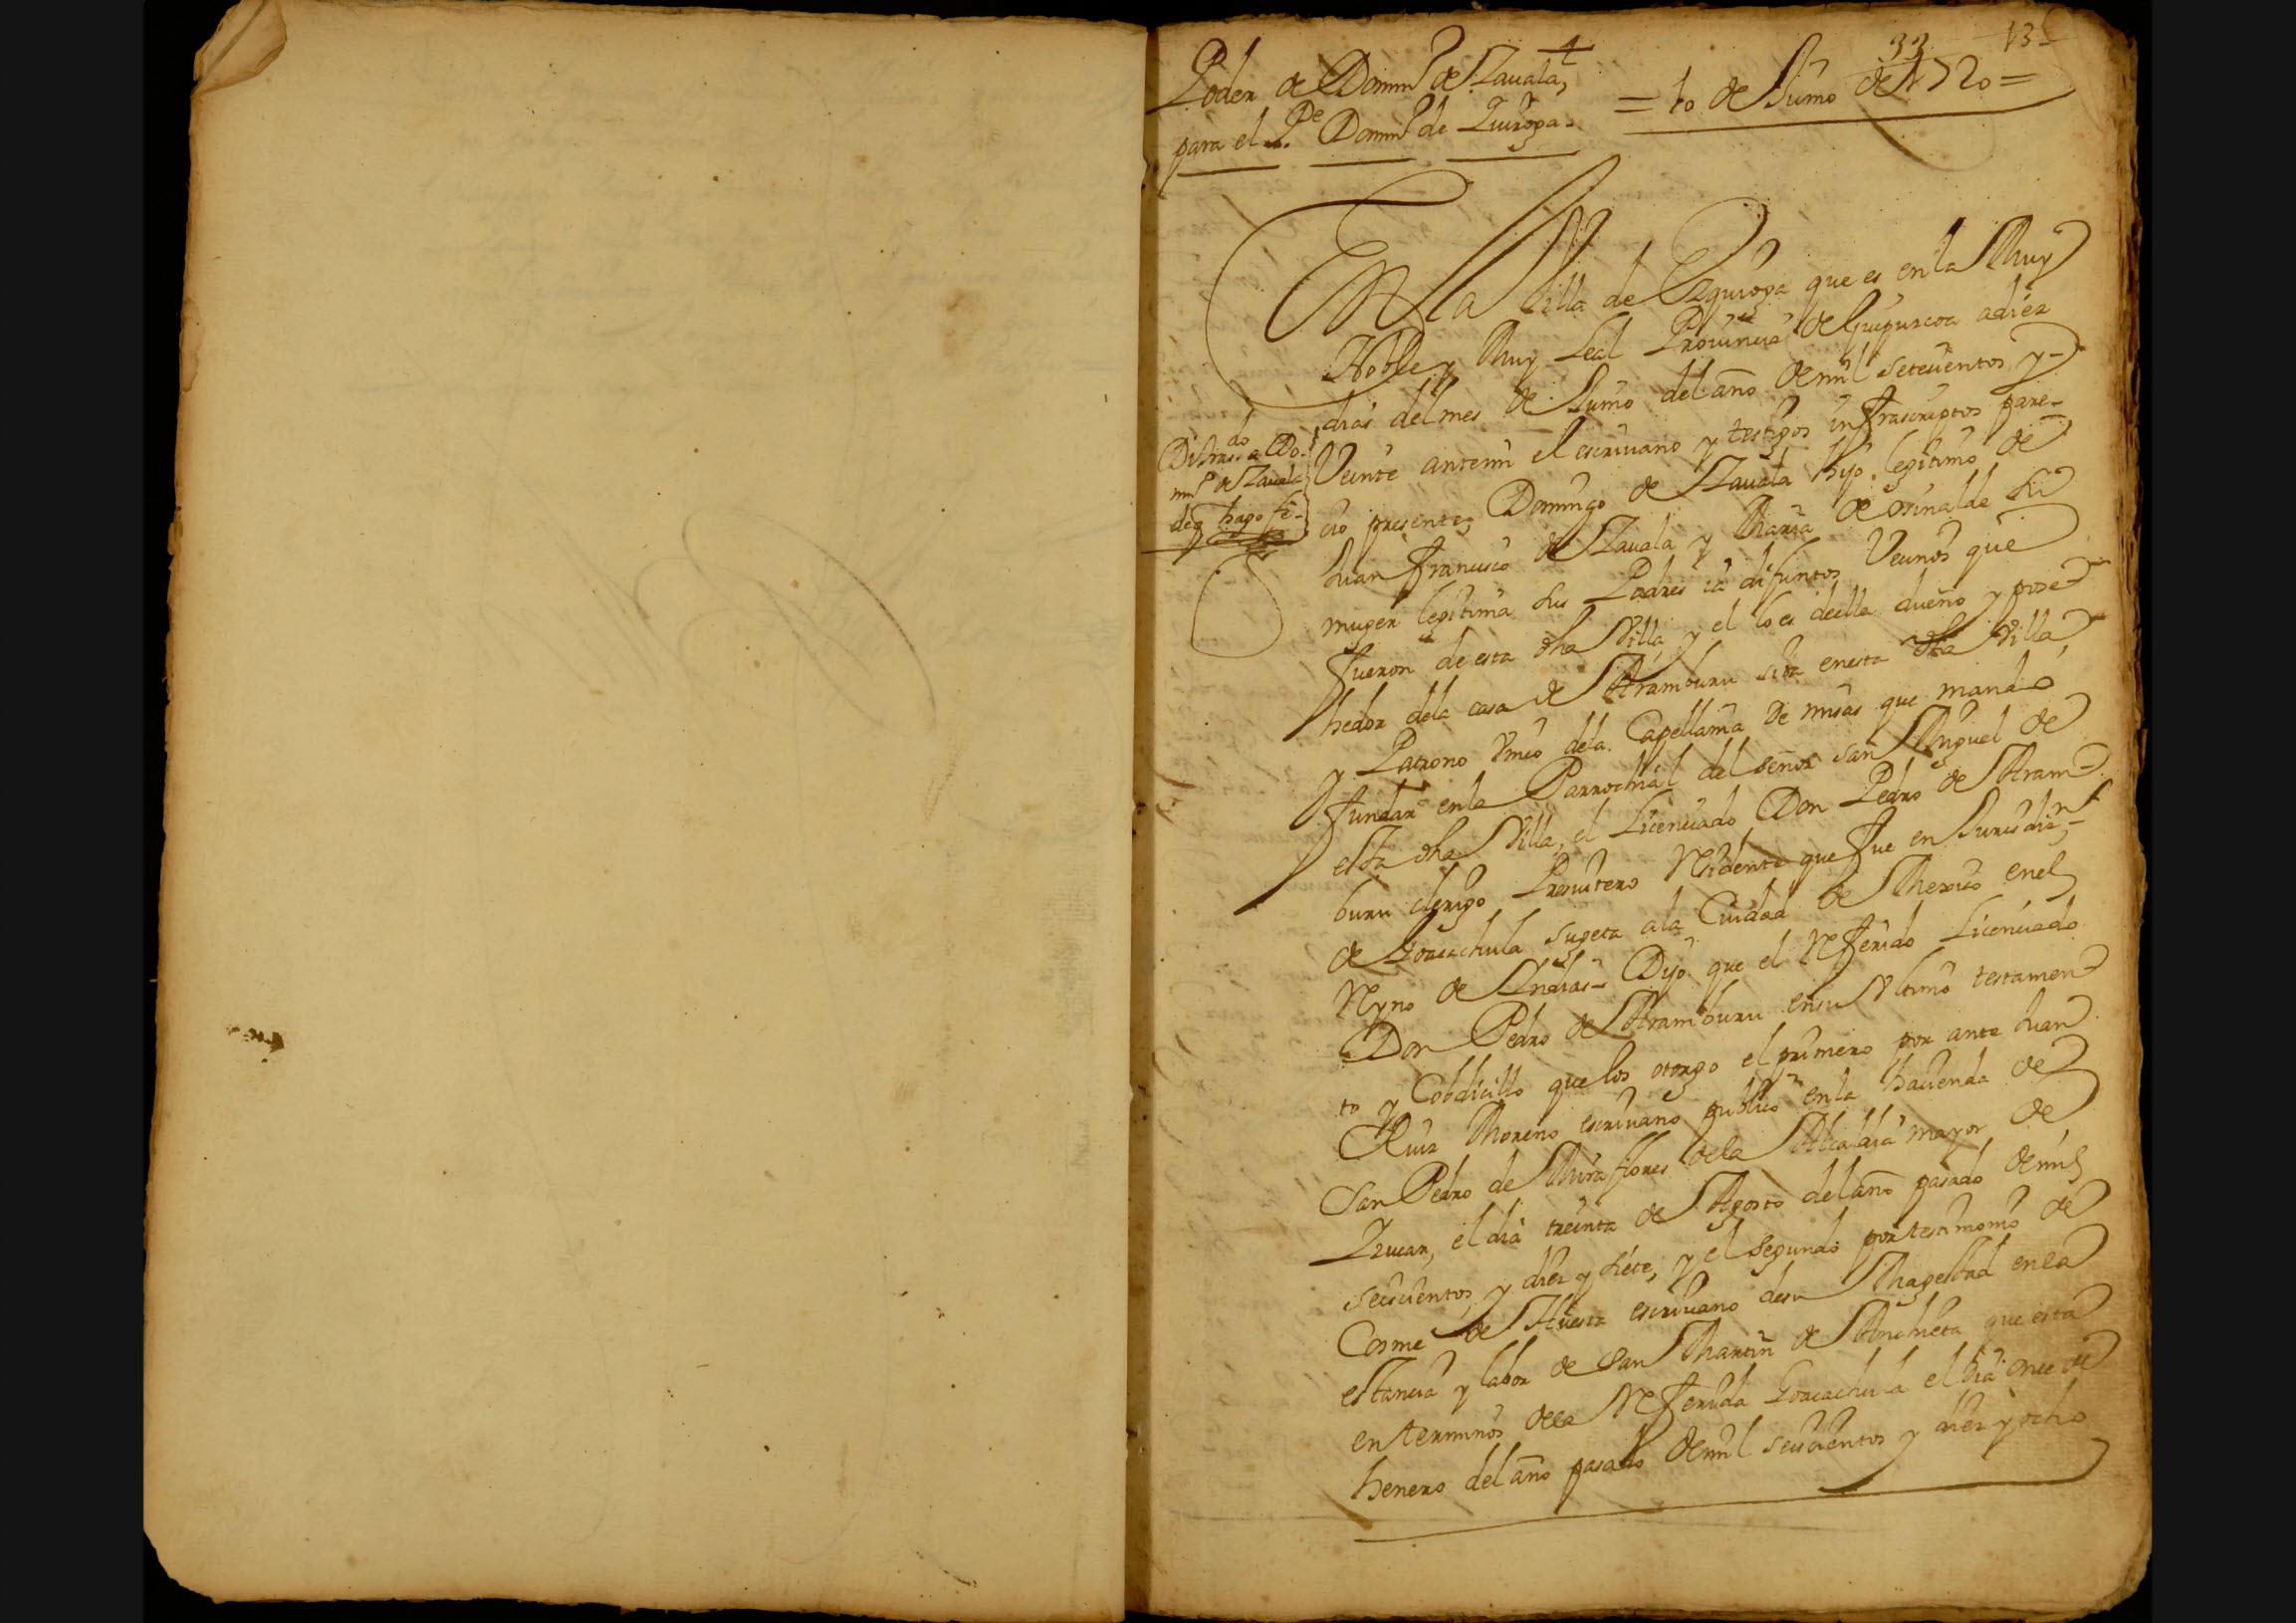 33 13
Poder de Domingo de Zauala,
para el Pe Domingo de Quiroga.
= 10 de Junio de 1720 =
En la Villa de Ezquioga que es en la Muy
Noble y Muy Leal Prouincia de Guipuzcoa a diez
dias del mes de Junio del año de mil setecientos y
Veinte antemi el escriuano y testigos infrascriptos pare-
cio presente Domingo de Zauala hijo legitimo de
Juan Francisco de Zauala y Maria de Orinalde su
muger legitima sus Padres ia difuntos Vecinos que
fueron de esta dha Villa, y el lo es de ella dueño y pose
hedor dela casa de Aramburu sita en esta dha Villa,
y Patrono Vnico dela Capellania de misas que mandó
fundar en la Parrochial del señor San Miguel de
esta dha Villa, el Licenciado Don Pedro de Aram
buru clerigo Presuitero Residente que fue en Jurisdicn
de sugeta ala Ciudad de Mexico en el
Reyno de Indias- Dijo que el Referido Licenciado
Don Pedro de Aramburu en su Vltimo testamen
to y Cobdicillo que los otorgo el primero por ante Juan
Ruiz Moreno escriuano publico en la hacienda de
San Pedro de Miraflores dela Alcaldia mayor de
Yzucar, el dia treinta de Agosto del año pasado de mil
seiscientos y diez y siete, y el segundo por testimonio de
Cosme de Huerta escriuano de su Magestad en la
estancia y labor de San Martin de que esta
en terminos dela Referida el dia once de
henero del año pasado de mil seiscientos y diez y ocho
do
Di trasa. a Do-
mingo de Zauala
deq hago fe-